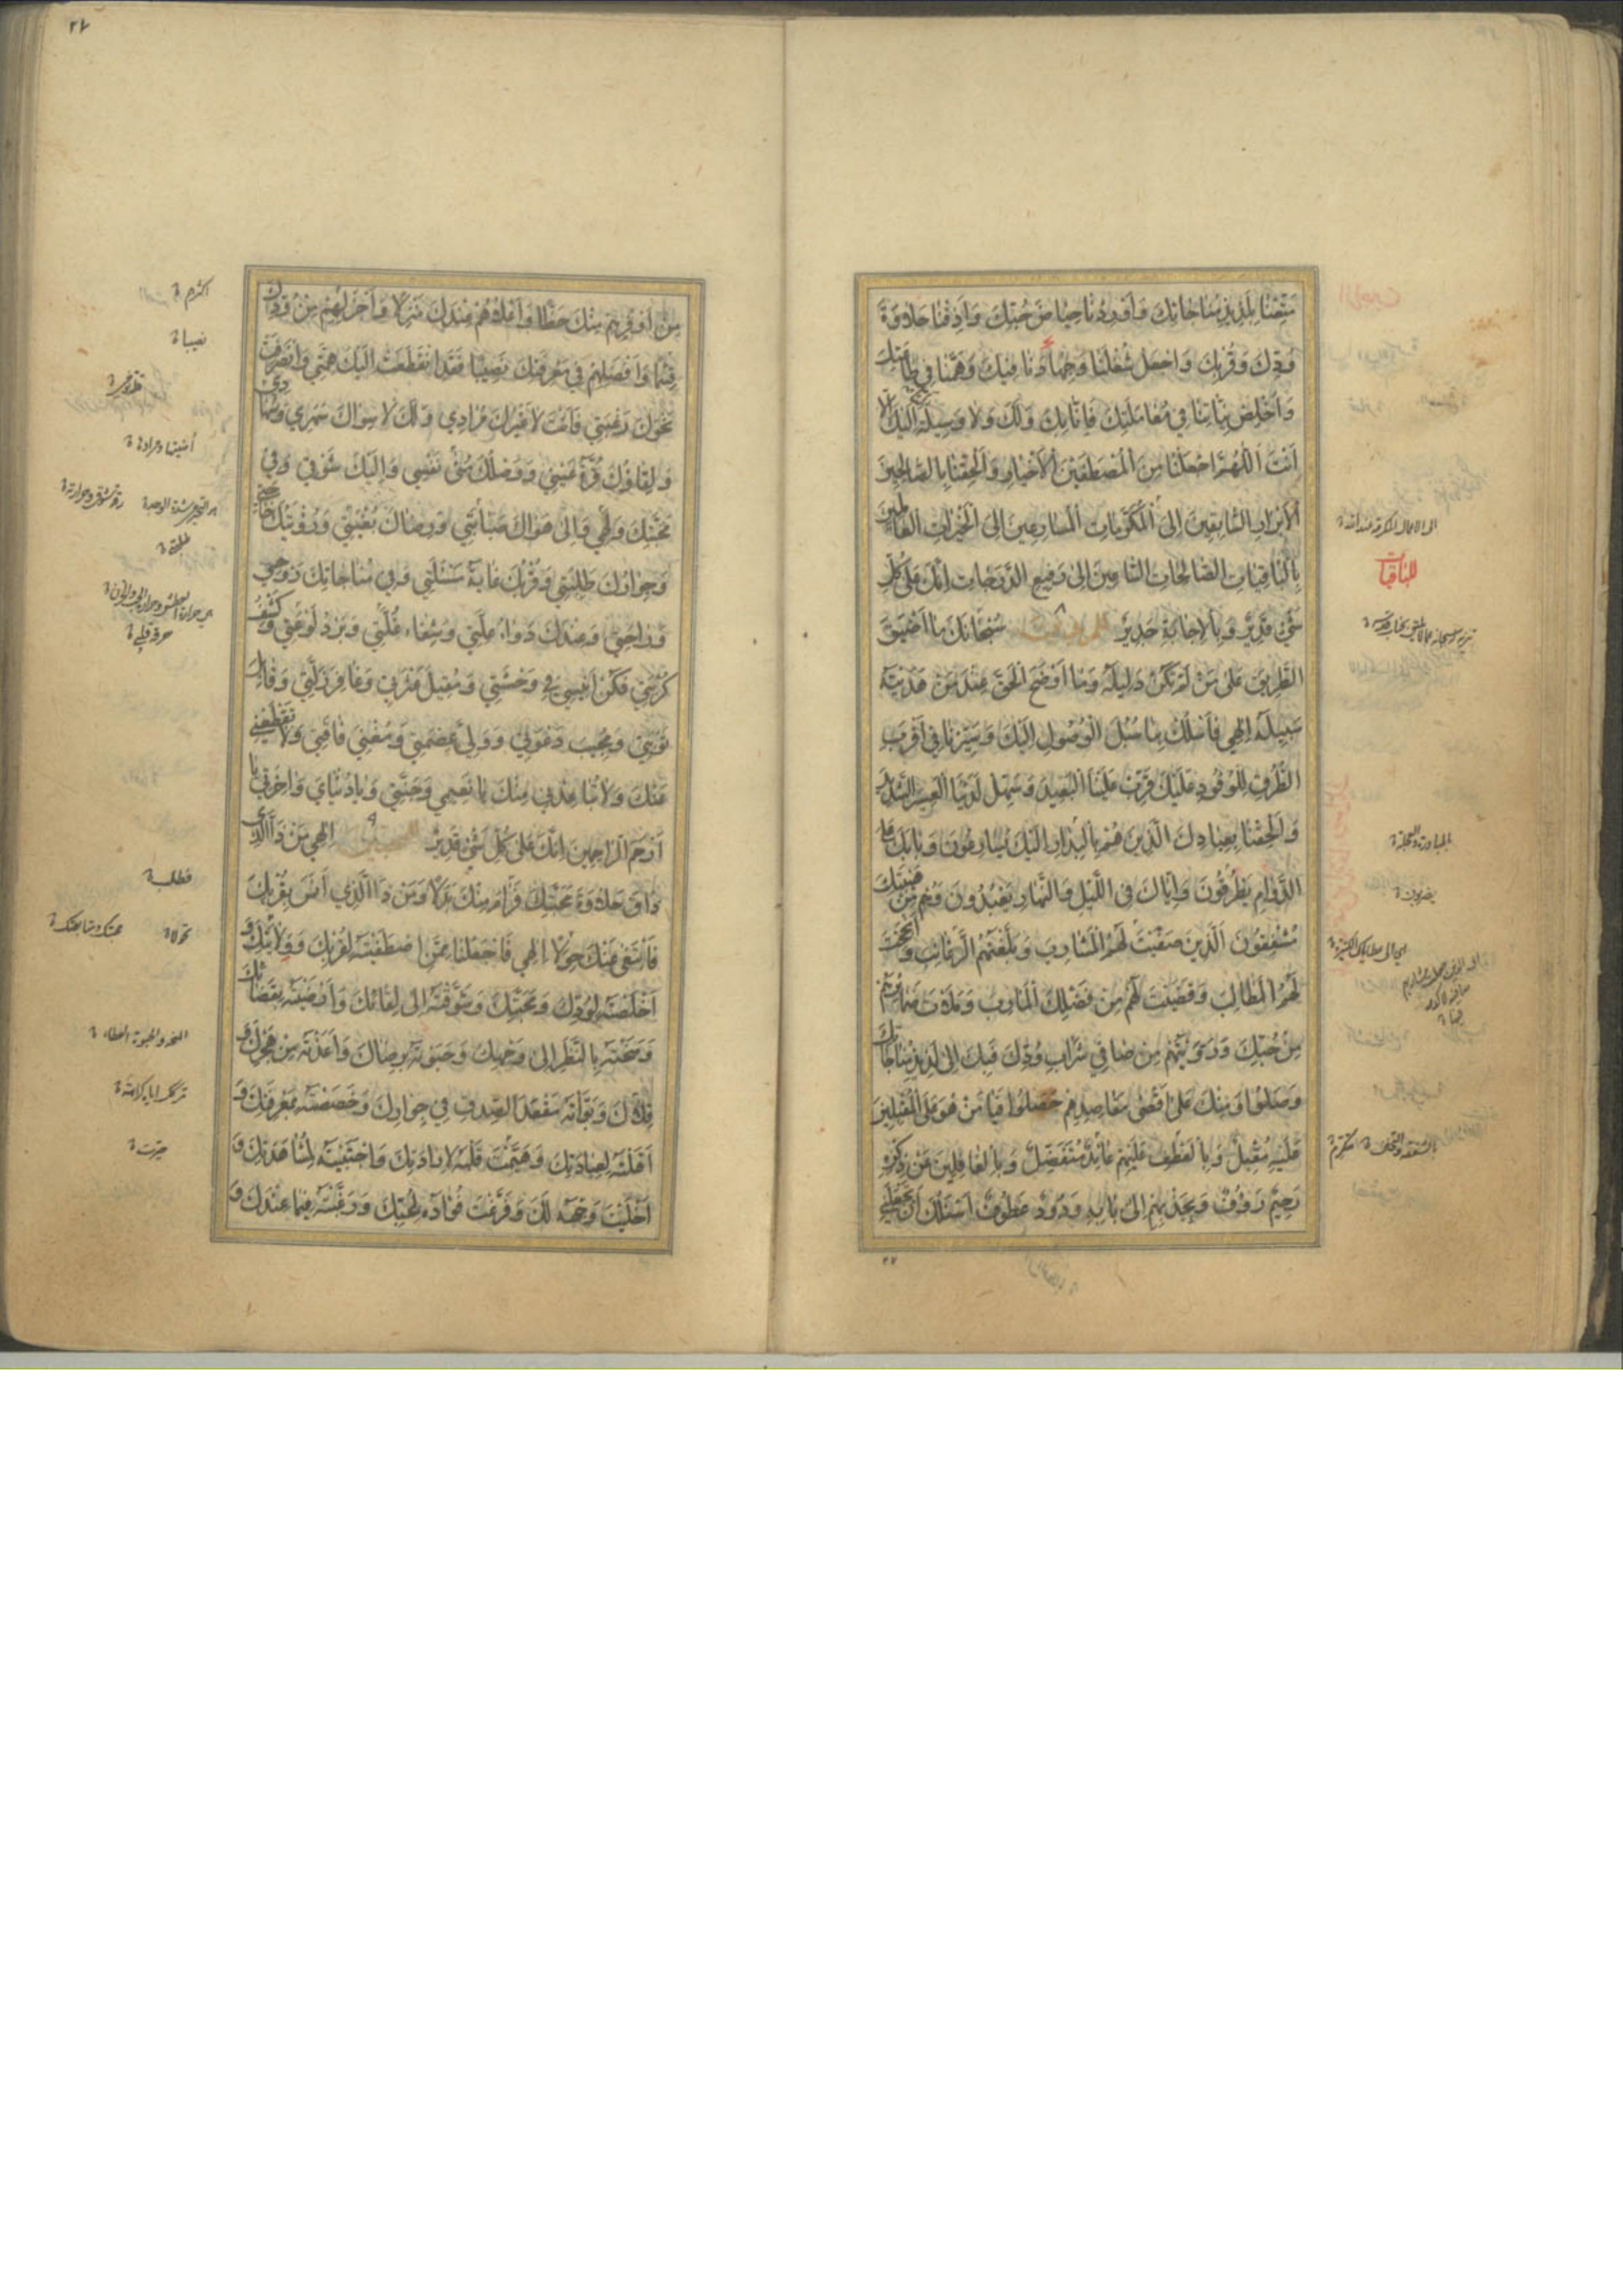 مَتِّعْنَا بِلَذِيذِ مُنَاجَاتِكَ وَأَوْرِدْنَا حِيَاضَ حُبِّكَ وَأَذِقْنَا حَلَاوَةَ
وُدِّكَ وَقُرْبِكَ وَاجْعَلْ شُغْلَنَا وَجِهَادَنَا فِيكَ وَهَمَّنَا فِي طَاعَتِكَ
وَأَخْلِصْ نِيَّاتِنَا فِي مُعَامَلَتِكَ فَإِنَّا بِكَ وَلَكَ وَلَا وَسِيلَةَ إِلَيْكَ إِلَّا
أَنْتَ اللّٰهُمَّ اجْعَلْنَا مِنَ الْمُصْطَفَيْنَ الْأَخْيَارِ وَأَلْحِقْنَا بِالصَّالِحِينَ
الْأَبْرَارِ السَّابِقِينَ إِلَى الْمَكْرُمَاتِ الْمُسَارِعِينَ إِلَى الْخَيْرَاتِ الْعَامِلِينَ
بِالْبَاقِيَاتِ الصَّالِحَاتِ السَّاعِينَ إِلَى رَفِيعِ الدَّرَجَاتِ إِنَّكَ عَلَى كُلِّ
شَيْءٍ قَدِيرٌ وَبِالْإِجَابَةِ جَدِيرٌ سُبْحَانَكَ مَا أَضْيَقَ
الطَّرِيقَ عَلَى مَنْ لَمْ تَكُنْ دَلِيلَهُ وَمَا أَوْضَحَ الْحَقَّ عِنْدَ مَنْ هَدَيْتَهُ
سَبِيلَهُ إِلٰهِي فَاسْلُكْ بِنَا سُبُلَ الْوُصُولِ إِلَيْكَ وَسَيِّرْنَا فِي أَقْرَبِ
الطُّرُقِ لِلْوُفُودِ عَلَيْكَ قَرِّبْ عَلَيْنَا الْبَعِيدَ وَسَهِّلْ لَدَيْنَا الْعَسِيرَ الشَّدِيدَ
وَأَلْحِقْنَا بِعِبَادِكَ الَّذِينَ هُمْ بِالْبِدَارِ إِلَيْكَ يُسَارِعُونَ وَبَابَكَ عَلَى
الدَّوَامِ يَطْرُقُونَ وَإِيَّاكَ فِي اللَّيْلِ وَالنَّهَارِ يَعْبُدُونَ وَهُمْ مِنْ هَيْبَتِكَ
مُشْفِقُونَ الَّذِينَ صَفَّيْتَ لَهُمُ الْمَشَارِبَ وَبَلَّغْتَهُمُ الرَّغَائِبَ وَأَنْجَحْتَ
لَهُمُ الْمَطَالِبَ وَقَضَيْتَ لَهُمْ مِنْ فَضْلِكَ الْمَآرِبَ وَمَلَأْتَ ضَمَائِرَهُمْ
مِنْ حُبِّكَ وَرَوَّيْتَهُمْ مِنْ صَافِي شَرَابِ وُدِّكَ فَبِكَ إِلَى لَذِيذِ مُنَاجَاتِكَ
وَصَلُوا وَمِنْكَ عَلَى أَقْصَى مَقَاصِدِهِمْ حَصَّلُوا فَيَا مَنْ هُوَ عَلَى الْمُقْبِلِينَ
عَلَيْهِ مُقْبِلٌ وَبِالْعَطْفِ عَلَيْهِمْ عَائِدٌ مُتَفَضِّلٌ وَبِالْغَافِلِينَ عَنْ ذِكْرِهِ
رَحِيمٌ رَؤُوفٌ وَبِجَذْبِهِمْ إِلَى بَابِهِ وَدُودٌ عَطُوفٌ أَسْئَلُكَ أَنْ تَجْعَلَنِي
للباقيات
٢٧
مِنْ أَوْفَرِهِمْ مِنْكَ حَظًّا وَأَعْلَاهُمْ عِنْدَكَ مَنْزِلًا وَأَجْزَلِهِمْ مِنْ وُدِّكَ
قِسْمًا وَأَفْضَلِهِمْ فِي مَعْرِفَتِكَ نَصِيبًا فَقَدِ انْقَطَعَتْ إِلَيْكَ هِمَّتِي وَانْصَرَفَتْ
نَحْوَكَ رَغْبَتِي فَأَنْتَ لَا غَيْرُكَ مُرَادِي وَلَكَ لَا سِوَاكَ سَهَرِي وَسُهَادِي
وَلِقَاؤُكَ قُرَّةُ عَيْنِي وَوَصْلُكَ مُنَى نَفْسِي وَإِلَيْكَ شَوْقِي وَفِي
مَحَبَّتِكَ وَلَهِي وَإِلَى هَوَاكَ صَبَابَتِي وَرِضَاكَ بُغْيَتِي وَرُؤْيَتُكَ حَاجَتِي
وَجِوَارُكَ طَلِبَتِي وَقُرْبُكَ غَايَةُ سُئْلَتِي وَفِي مُنَاجَاتِكَ رَوْحِي
وَرَاحَتِي وَعِنْدَكَ دَوَاءُ عِلَّتِي وَشِفَاءُ غُلَّتِي وَبَرْدُ لَوْعَتِي وَكَشْفُ
كُرْبَتِي فَكُنْ أَنِيسِي فِي وَحْشَتِي وَمُقِيلَ عَثْرَتِي وَغَافِرَ زَلَّتِي وَقَابِلَ
تَوْبَتِي وَمُجِيبَ دَعْوَتِي وَوَلِيَّ عِصْمَتِي وَمُغْنِيَ فَاقَتِي وَلَا تَقْطَعْنِي
عَنْكَ وَلَا تُبَاعِدْنِي مِنْكَ يَا نَعِيمِي وَجَنَّتِي وَيَا دُنْيَايَ وَآخِرَتِي يَا
أَرْحَمَ الرَّاحِمِينَ إِنَّكَ عَلَى كُلِّ شَيْءٍ قَدِيرٌ إِلٰهِي مَنْ ذَا الَّذِي
ذَاقَ حَلَاوَةَ مَحَبَّتِكَ فَرَامَ مِنْكَ بَدَلًا وَمَنْ ذَا الَّذِي أَنِسَ بِقُرْبِكَ
فَابْتَغَى عَنْكَ حِوَلًا إِلٰهِي فَاجْعَلْنَا مِمَّنِ اصْطَفَيْتَهُ لِقُرْبِكَ وَوِلَايَتِكَ وَ
أَخْلَصْتَهُ لِوُدِّكَ وَمَحَبَّتِكَ وَشَوَّقْتَهُ إِلَى لِقَائِكَ وَأَرْضَيْتَهُ بِقَضَائِكَ
وَمَنَحْتَهُ بِالنَّظَرِ إِلَى وَجْهِكَ وَحَبَوْتَهُ بِرِضَاكَ وَأَعَذْتَهُ مِنْ هَجْرِكَ وَ
قِلَاكَ وَبَوَّأْتَهُ مَقْعَدَ الصِّدْقِ فِي جِوَارِكَ وَخَصَصْتَهُ بِمَعْرِفَتِكَ وَ
أَهَّلْتَهُ لِعِبَادَتِكَ وَهَيَّمْتَ قَلْبَهُ لِإِرَادَتِكَ وَاجْتَبَيْتَهُ لِمُشَاهَدَتِكَ وَ
أَخْلَيْتَ وَجْهَهُ لَكَ وَفَرَّغْتَ فُؤَادَهُ لِحُبِّكَ وَرَغَّبْتَهُ فِيمَا عِنْدَكَ وَ
نصيبا